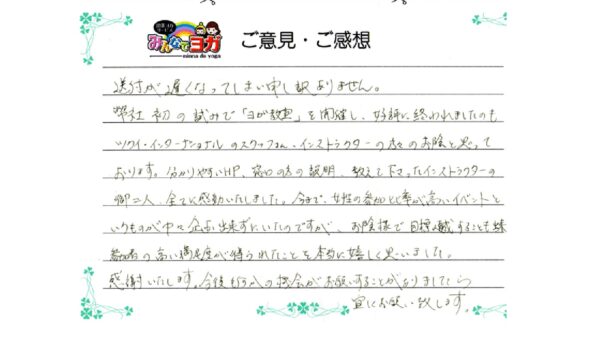 出張ヨガ
サービス
みんなでヨガ
minna de yoga
ご意見・ご感想
送付が遅くなってしまい申し訳ありません。
弊社初の試みで「ヨガ教室」を開催し、好評に終われましたのも
ツクイ・インターナショナルのスタッフさん、インストラクターの方々のお陰と思って
おります。分かりやすいHP、窓口の方の説明、教えて下さったインストラクターの
御二人、全てに感動いたしました。今まで、女性の参加比率が高いイベントと
いうものが中々企画出来ずにいたのですが、お陰様で目標達成することも出来
参加者の高い満足度が得られたことを本当に嬉しく思いました。
感謝いたします。今後もヨガの機会がお願いすることがありましたら
宜しくお願い致します。